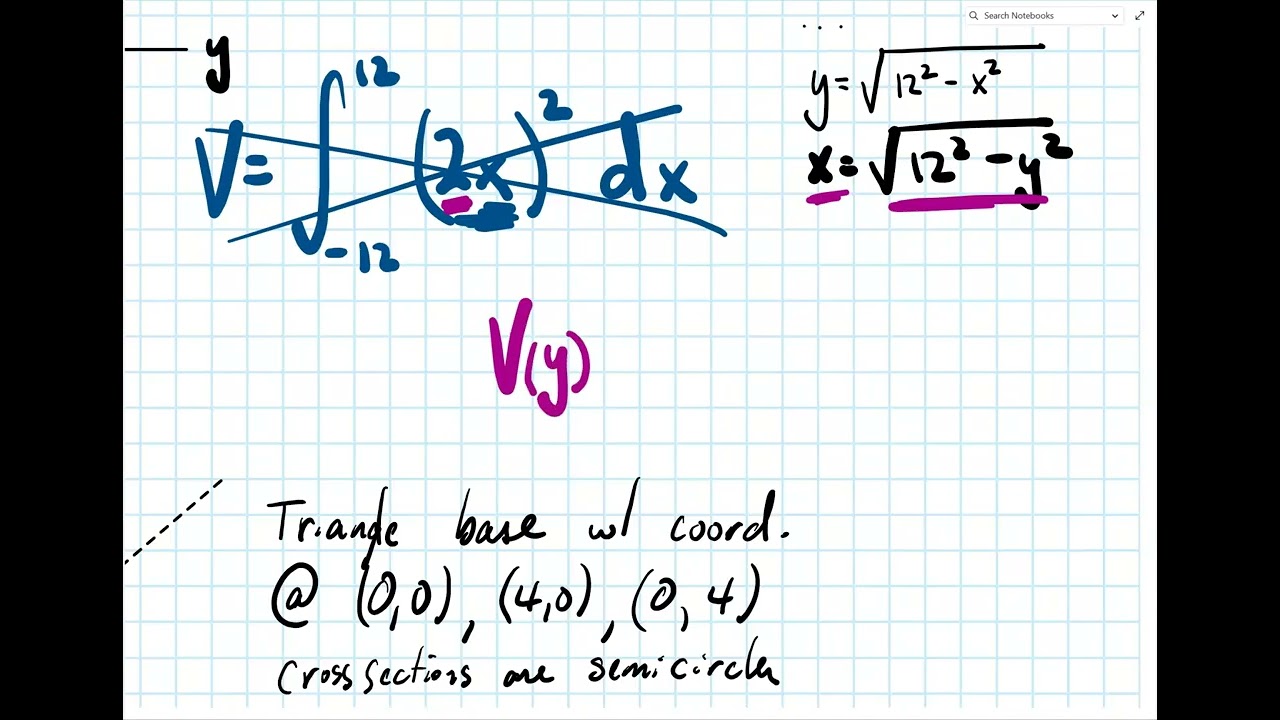 Search Notebooks
...
y
V = ∫₋₁₂¹² (2x)² dx
y = √(12² - x²)
x = √(12² - y²)
V(y)
Triangle base w/ coord.
@ (0,0), (4,0), (0,4)
Cross sections are semicircles